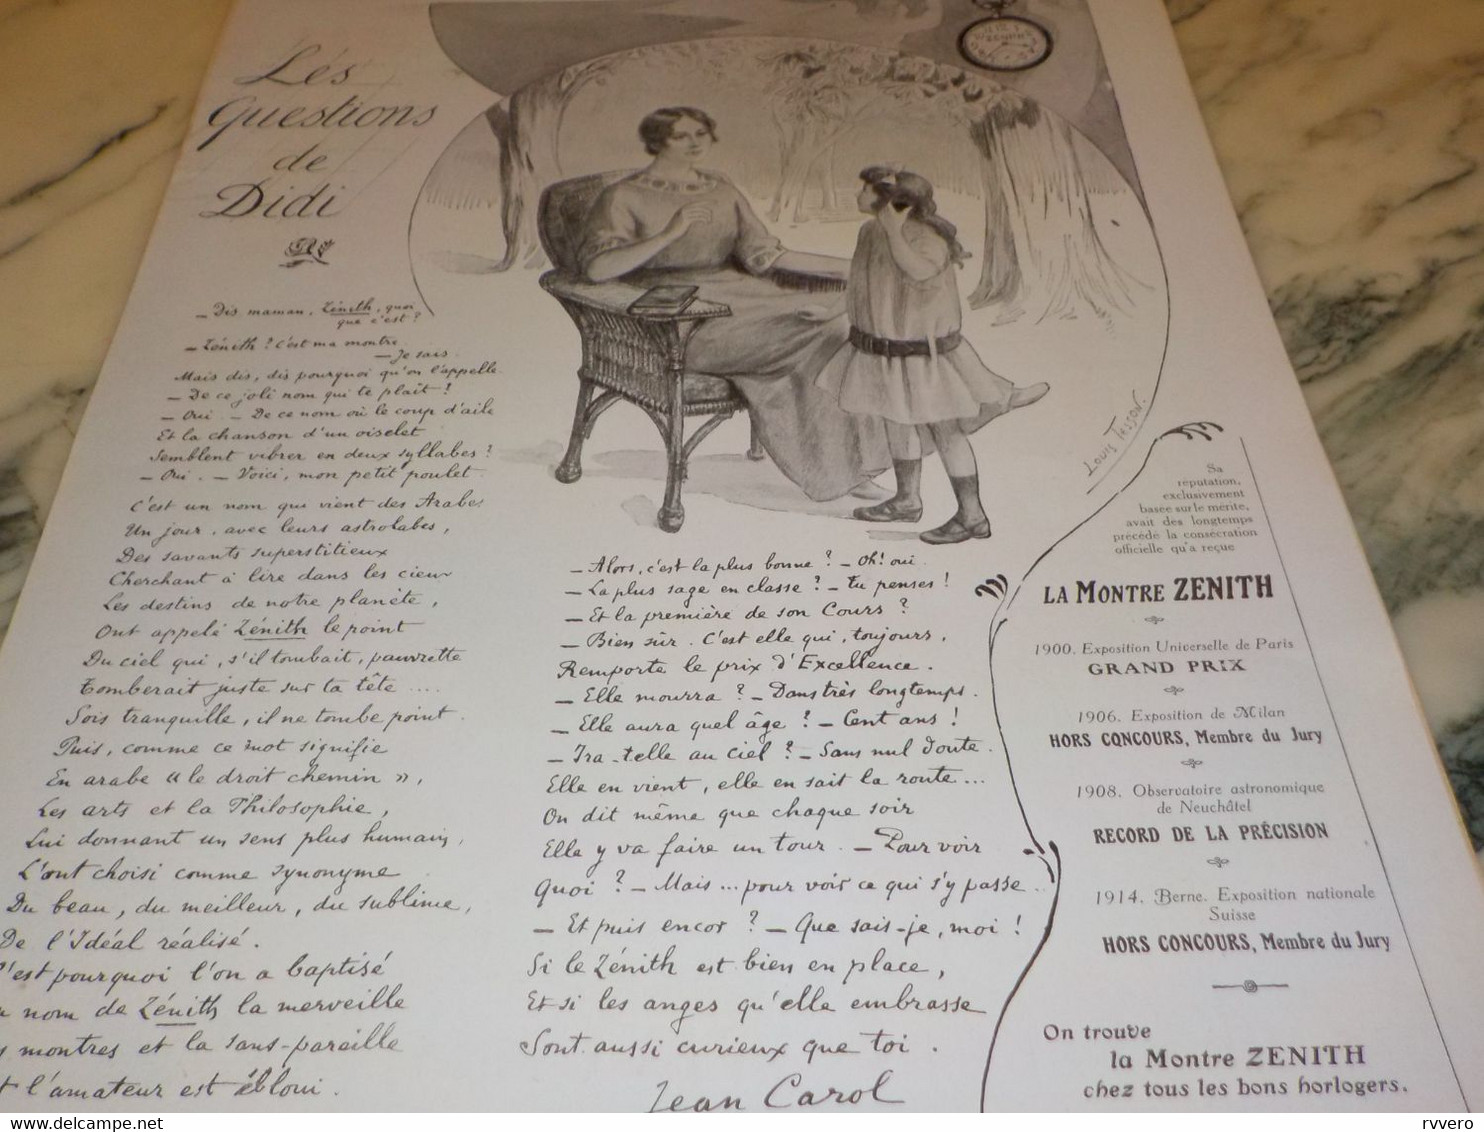 Les
Questions
de
Didi
— Dis maman, Zénith, quoi
que c'est ?
— Zénith ? C'est ma montre.
— Je sais.
Mais dis, dis pourquoi qu'on l'appelle
— De ce joli nom qui te plaît !
— Oui — De ce nom où le coup d'aile
Et la chanson d'un oiselet
Semblent vibrer en deux syllabes ?
— Oui . — Voici, mon petit poulet.
C'est un nom qui vient des Arabes
Un jour, avec leurs astrolabes,
Des savants superstitieux
Cherchant à lire dans les cieux
Les destins de notre planète,
Ont appelé Zénith le point
Du ciel qui, s'il tombait, pauvrette
Tomberait juste sur ta tête ....
Sois tranquille, il ne tombe point.
Puis, comme ce mot signifie
En arabe « le droit chemin »,
Les arts et la Philosophie,
Lui donnant un sens plus humain,
L'ont choisi comme synonyme
Du beau, du meilleur, du sublime,
De l'Idéal réalisé.
C'est pourquoi l'on a baptisé
nom de Zénith la merveille
montres et la sans-pareille
l'amateur est ébloui.
— Alors, c'est la plus bonne ? — Oh! oui.
— La plus sage en classe ? — tu penses !
— Et la première de son Cours ?
— Bien sûr. C'est elle qui, toujours,
Remporte le prix d'Excellence.
— Elle mourra ? — Dans très longtemps.
— Elle aura quel âge ? — Cent ans !
— Ira-telle au ciel ? — Sans nul doute.
Elle en vient, elle en sait la route...
On dit même que chaque soir
Elle y va faire un tour. — Pour voir
Quoi ? — Mais... pour voir ce qui s'y passe..
— Et puis encor ? — Que sais-je, moi !
Si le Zénith est bien en place,
Et si les anges qu'elle embrasse
Sont aussi curieux que toi .
Jean Carol
Louis Tesson.
Sa
réputation,
exclusivement
basée sur le mérite,
avait dès longtemps
précédé la consécration
officielle qu'a reçue
LA MONTRE ZENITH
1900. Exposition Universelle de Paris
GRAND PRIX
1906. Exposition de Milan
HORS CONCOURS, Membre du Jury
1908. Observatoire astronomique
de Neuchâtel
RECORD DE LA PRÉCISION
1914. Berne. Exposition nationale
Suisse
HORS CONCOURS, Membre du Jury
On trouve
la Montre ZENITH
chez tous les bons horlogers.
rvvero